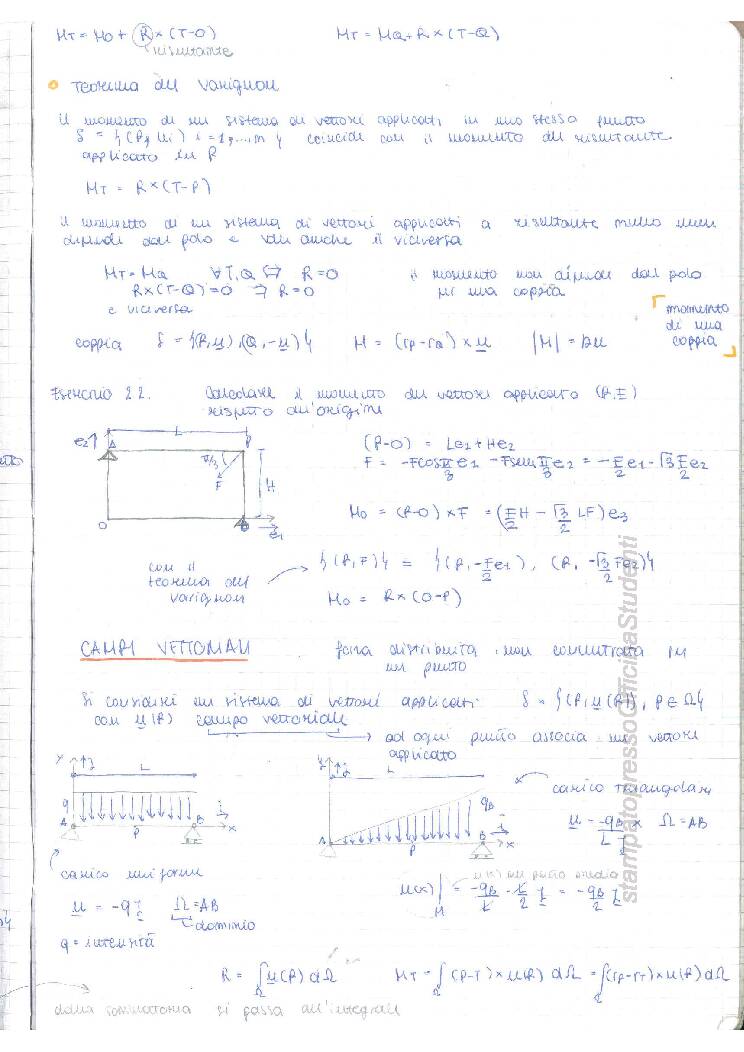 MT = MO + R × (T-O)          MT = MQ + R × (T-Q)
risultante
• Teorema del Varignon
il momento di un sistema di vettori applicati in uno stesso punto
S = {(P, ui) i = 1, ..., n} coincide con il momento del risultante
applicato in P
MT = R × (T-P)
il momento di un sistema di vettori applicati a risultante nullo non
dipende dal polo e vale anche il viceversa
MT = MQ ∀T,Q ⇔ R = 0          il momento non dipende dal polo
R × (T-Q) = 0 ⇒ R = 0          in una coppia
e viceversa
momento
di una
coppia
coppia S = {(P, u), (Q, -u)}   M = (rP - rQ) × u   |M| = bu
Esercizio 2.2. Calcolare il momento del vettore applicato (P, F)
rispetto all'origine
L
e2 A P
π/3
F
H
O
e1
(P-O) = Le1 + He2
F = -F cos π/3 e1 - F sen π/3 e2 = -F/2 e1 - √3 F/2 e2
MO = (P-O) × F = (F/2 H - √3/2 LF) e3
con il
teorema del
Varignon
{(P, F)} = {(P, -F/2 e1), (P, -√3/2 Fe2)}
MO = R × (O-P)
CAMPI VETTORIALI          forza distribuita, non concentrata in
un punto
Si consideri un sistema di vettori applicati S = {(P, u(P)), P ∈ Ω}
con u(P) campo vettoriale
ad ogni punto associa un vettore
applicato
y j L
q A P B i x
y j L
qB
A P B i x
carico triangolare
u = -qB/L x j   Ω = AB
carico uniforme
u = -q j   Ω = AB
dominio
q = intensità
u(x) nel punto medio
u(x)|M = -qB/L · L/2 j = -qB/2 j
R = ∫Ω u(P) dΩ          MT = ∫Ω (P-T) × u(P) dΩ = ∫Ω (rP - rT) × u(P) dΩ
dalla sommatoria si passa all'integrale
stampatopressoOfficinaStudenti